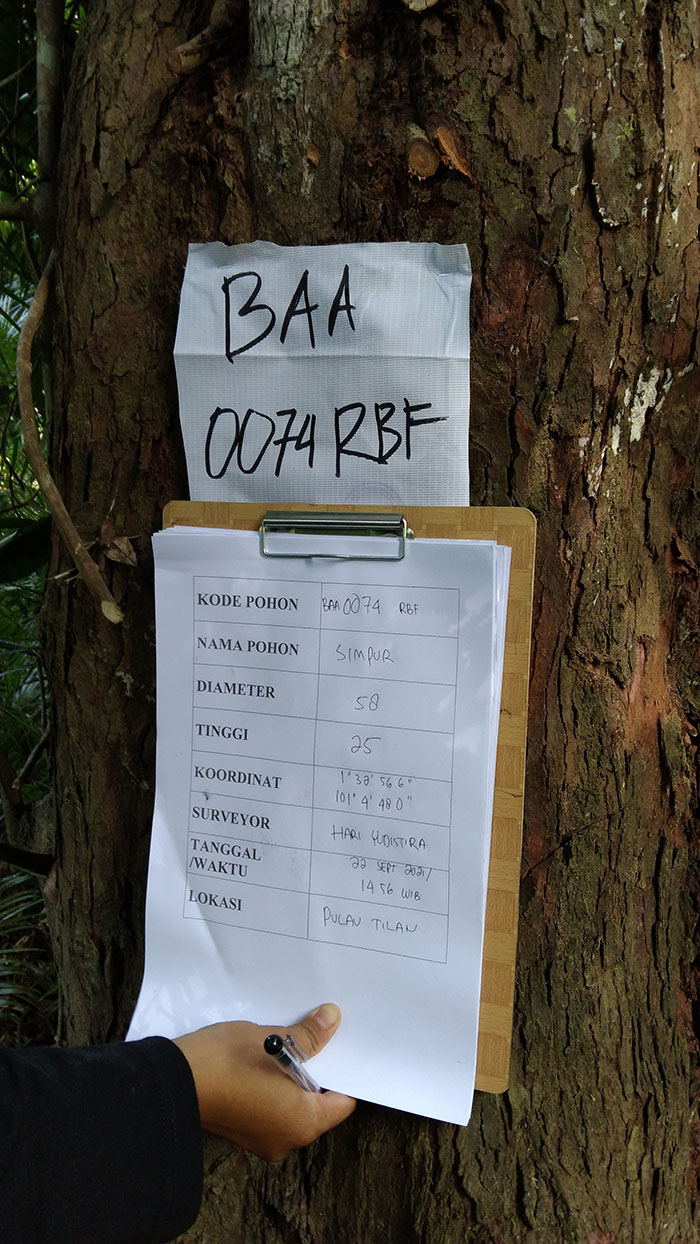 BAA
0074 RBF
KODE POHON BAA 0074 RBF
NAMA POHON SIMPUR
DIAMETER 58
TINGGI 25
KOORDINAT 1° 32' 56 6"
101° 4' 48 0"
SURVEYOR HARI YUDISTIRA
TANGGAL 22 SEPT 2021/
/WAKTU 14.56 WIB
LOKASI PULAU TILAN